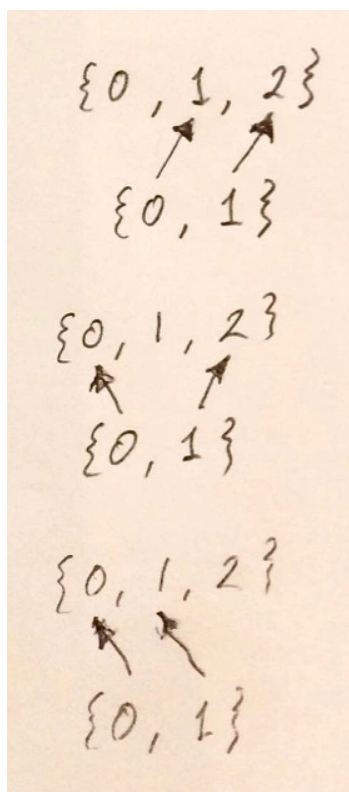 {0, 1, 2}
{0, 1}
{0, 1, 2}
{0, 1}
{0, 1, 2}
{0, 1}